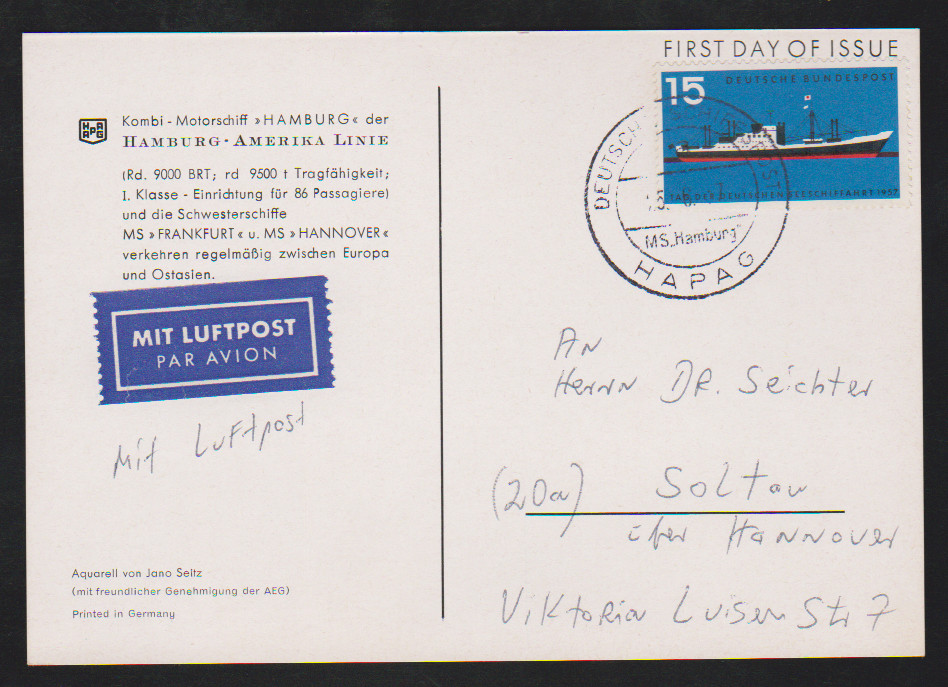 FIRST DAY OF ISSUE
15 DEUTSCHE BUNDESPOST
TAG DER DEUTSCHEN SEESCHIFFAHRT 1957
DEUTSCHE
MS „Hamburg"
HAPAG
HAPAG
Kombi - Motorschiff »HAMBURG« der
HAMBURG - AMERIKA LINIE
(Rd. 9000 BRT; rd 9500 t Tragfähigkeit;
I. Klasse - Einrichtung für 86 Passagiere)
und die Schwesterschiffe
MS »FRANKFURT« u. MS »HANNOVER«
verkehren regelmäßig zwischen Europa
und Ostasien.
MIT LUFTPOST
PAR AVION
Mit Luftpost
An
Herrn DR. Seichter
(20a) Soltau
über Hannover
Viktoria Luisen Str 7
Aquarell von Jano Seitz
(mit freundlicher Genehmigung der AEG)
Printed in Germany